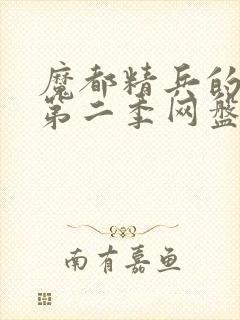 魔都精兵的
第二季网盘
南有嘉鱼